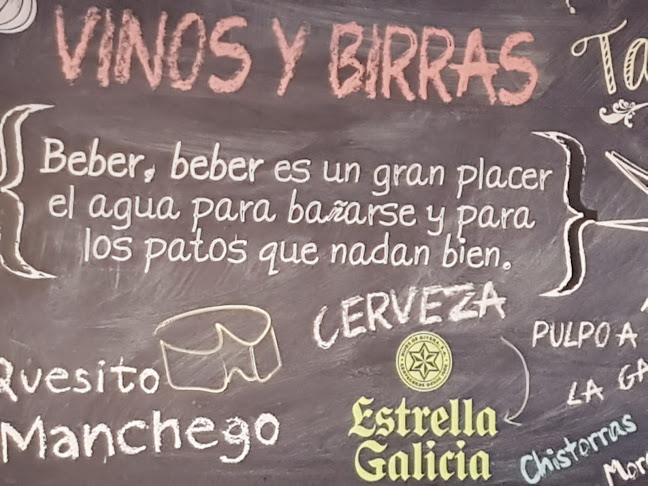 VINOS Y BIRRAS
Ta
Beber, beber es un gran placer
el agua para bañarse y para
los patos que nadan bien.
CERVEZA
Estrella
Galicia
Quesito
Manchego
PULPO A
LA GA
Chistorras
Mor